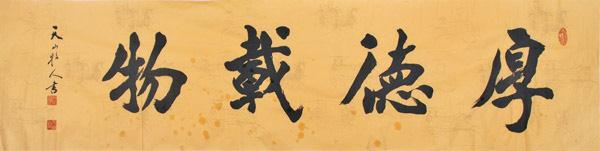 厚德載物
天山牧人書